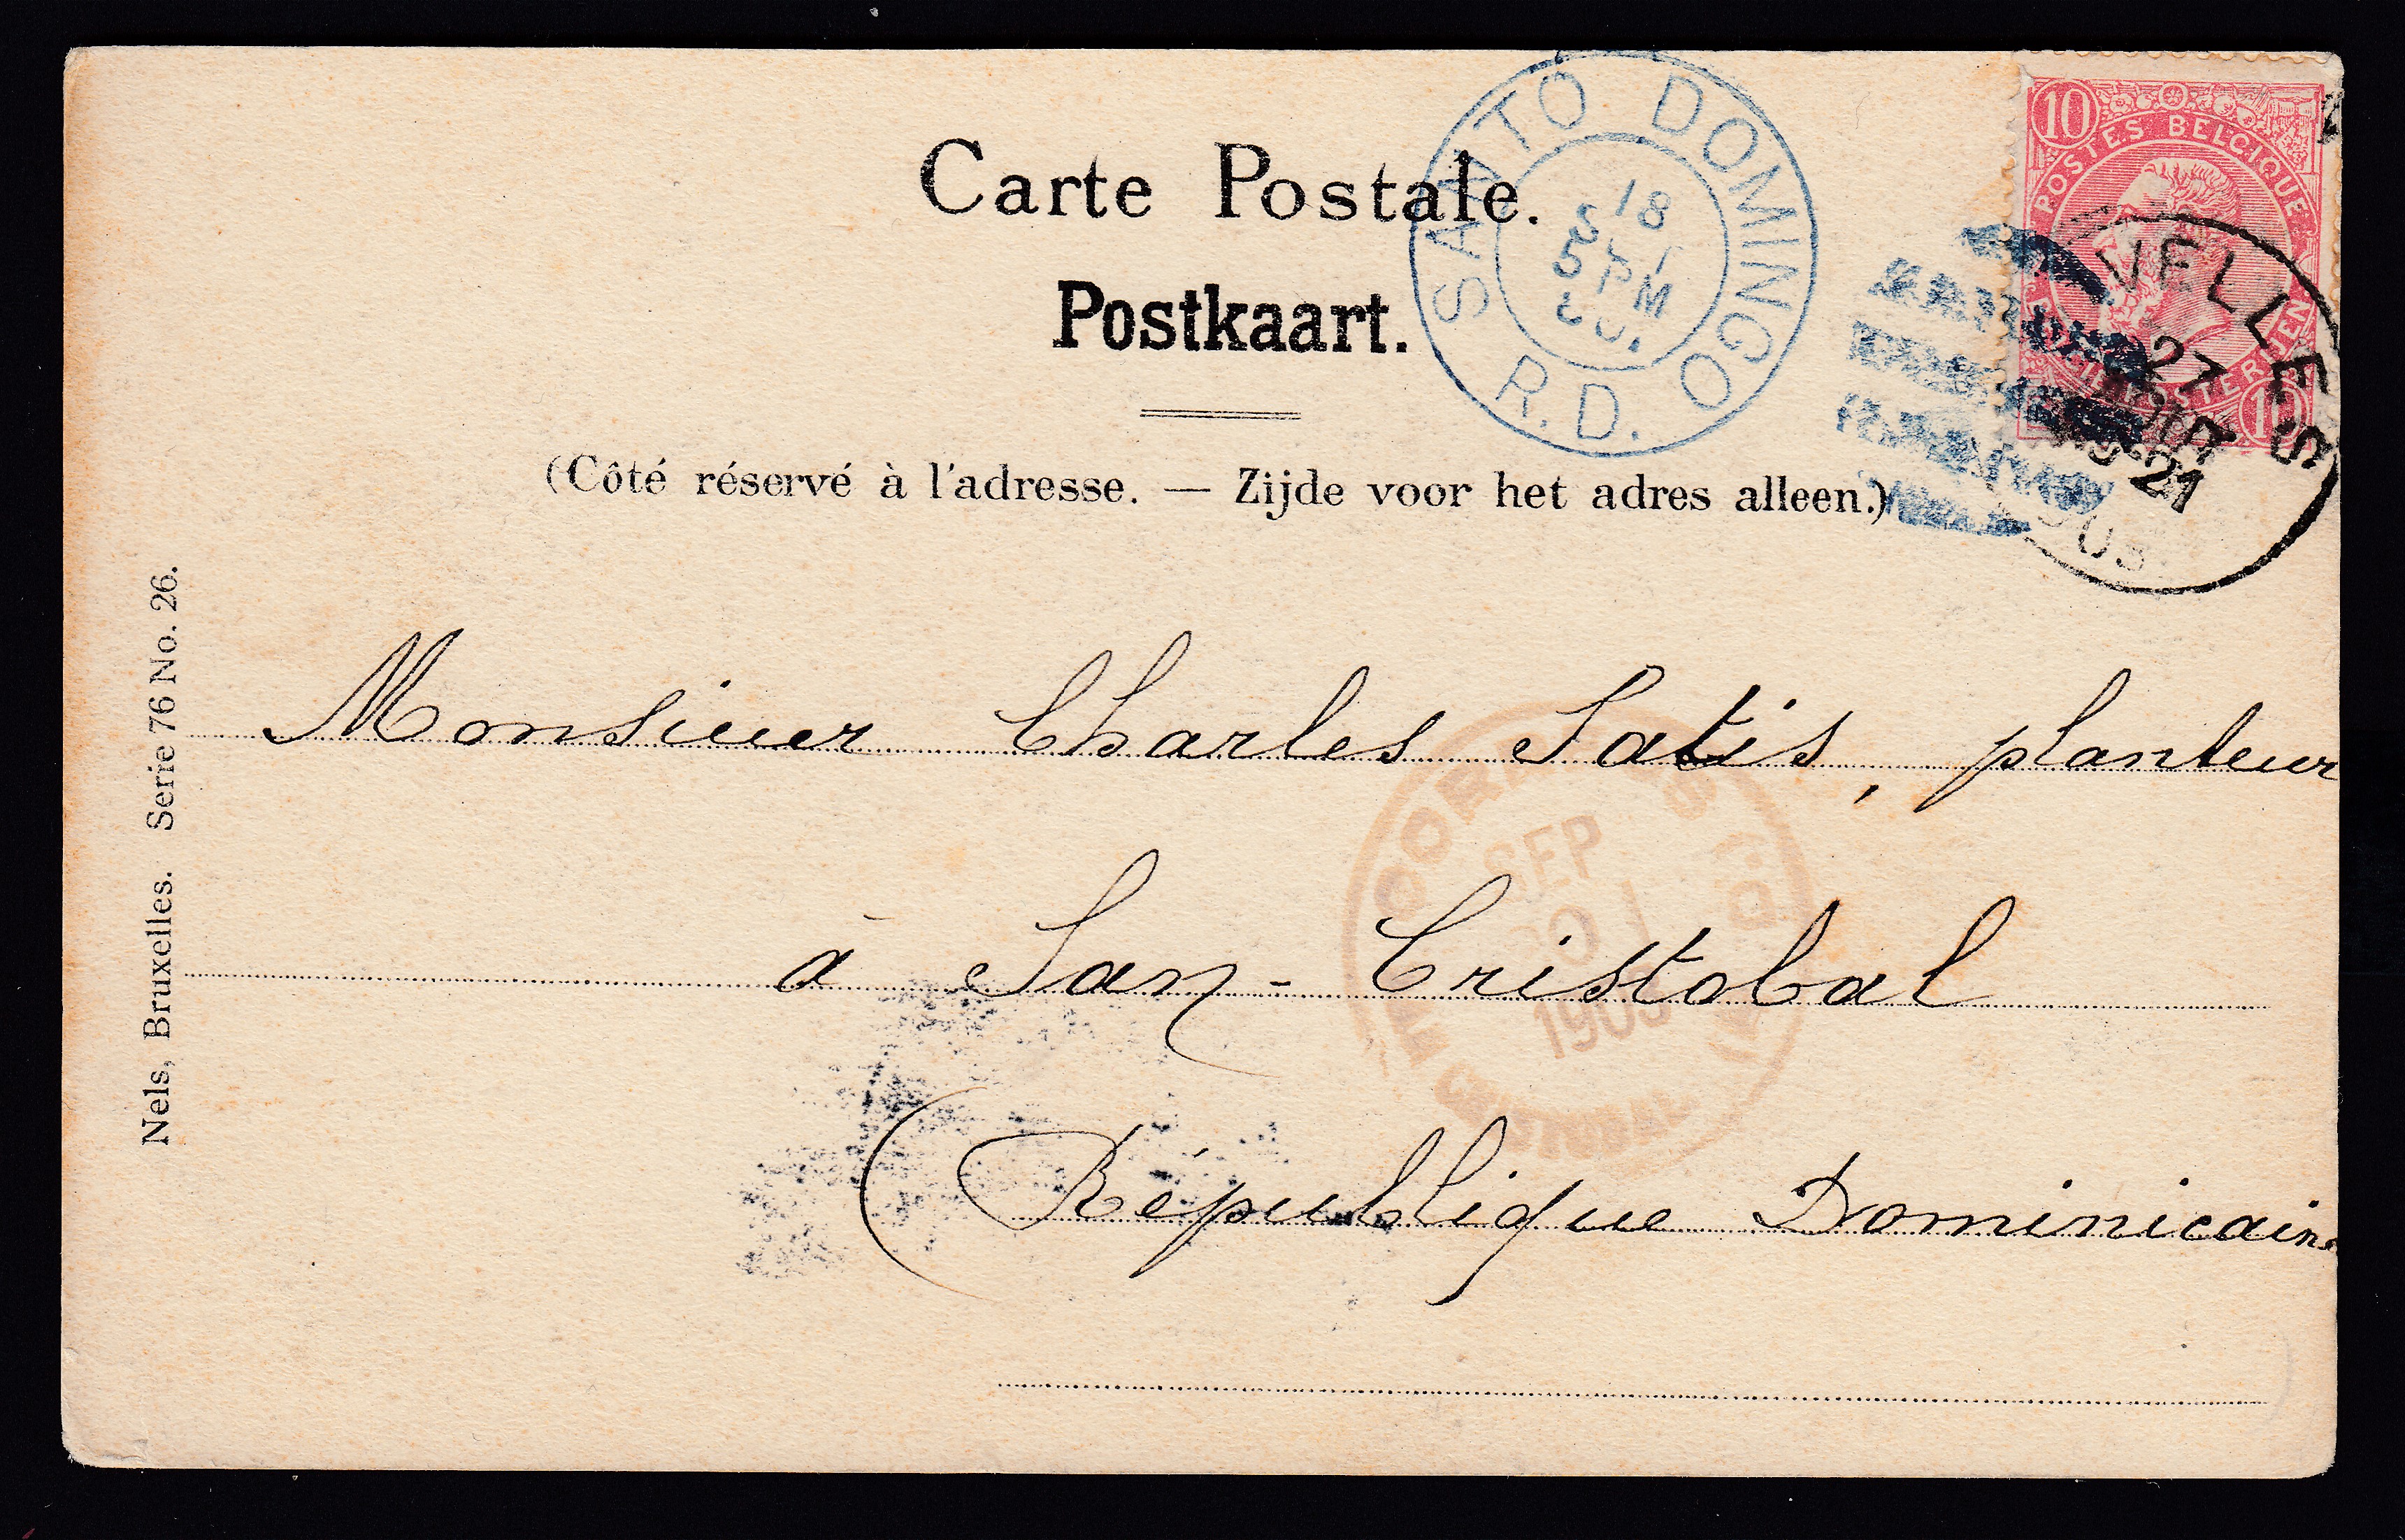 Carte Postale.
Postkaart.
(Côté réservé à l'adresse. — Zijde voor het adres alleen.)
SANTO DOMINGO
18
5 PM
R.D.
10
POSTES BELGIQUE
10
VELLES
27
21
Nels, Bruxelles. Serie 76 No. 26.
Monsieur Charles Satis, planteur
à San-Cristobal
(République Dominicaine
SEP
1903